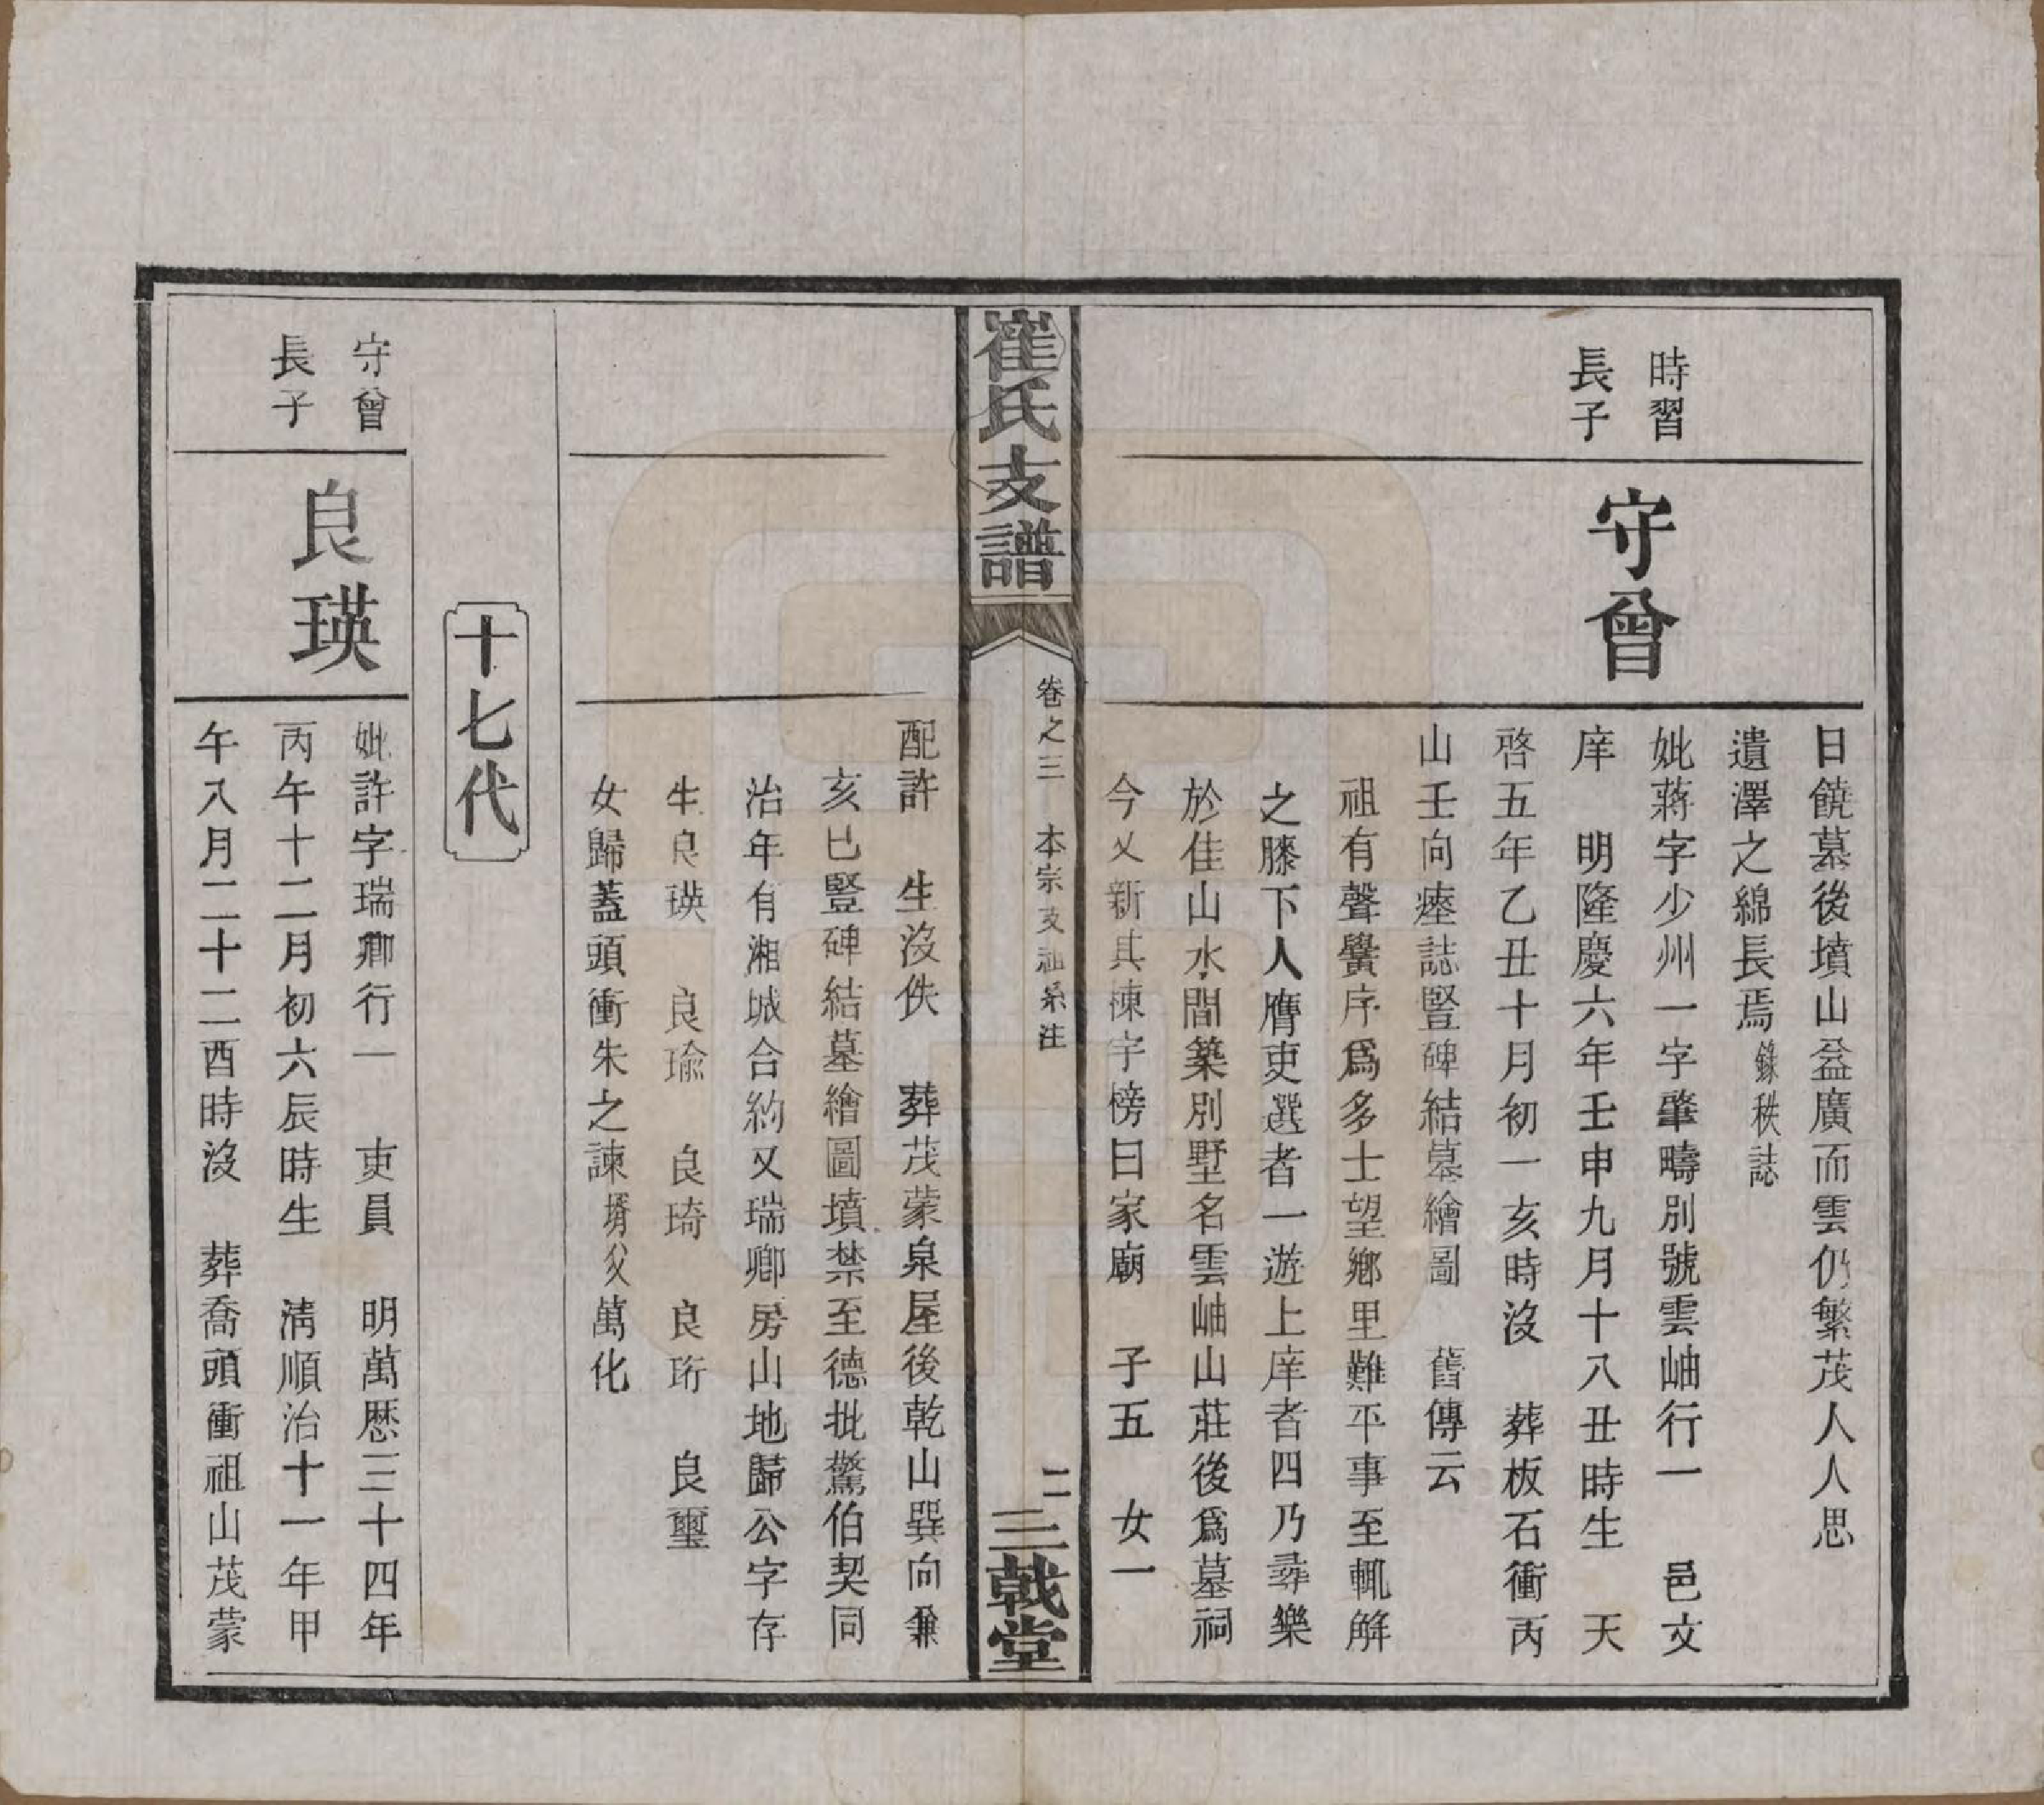 日饒墓後墳山益廣而雲仍繁茂人人思
遺澤之綿長焉錄秩誌
時習
長子
守曾
妣蔣字少州一字肇疇別號雲岫行一　邑文
庠　明隆慶六年壬申九月十八丑時生　天
啓五年乙丑十月初一亥時沒　葬板石衝丙
山壬向瘞誌豎碑結墓繪圖　舊傳云
祖有聲黌序爲多士望鄉里難平事至輒解
之膝下人膺吏選者一遊上庠者四乃尋樂
於佳山水間築別墅名雲岫山莊後爲墓祠
今乂新其棟宇榜曰家廟　子五　女一
崔氏支譜
卷之三　本宗支祖系注
二
三戟堂
配許　生沒佚　葬茂蒙泉屋後乾山巽向兼
亥巳豎碑結墓繪圖墳禁至德批驚伯契同
治年有湘城合約又瑞卿房山地歸公字存
生良瑛　良瑜　良琦　良珩　良璽
女歸蓋頭衝朱之諫壻父萬化
十七代
守曾
長子
良瑛
妣許字瑞卿行一　吏員　明萬歷三十四年
丙午十二月初六辰時生　淸順治十一年甲
午八月二十二酉時沒　葬喬頭衝祖山茂蒙